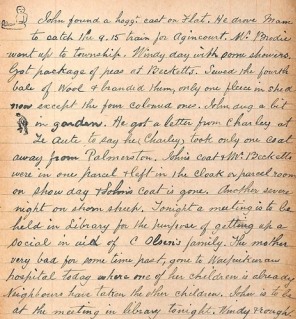 John found a hogg cast on Flat. He drove Mam
to catch the 9.15 train for Agincourt. Mr Bredie
went up to township. Windy day with some showers.
Got package of peas at Becketts. Sewed the fourth
bale of Wool & branded them, only one fleece in shed
now except the four coloured ones. John dug a bit
in garden. He got a letter from Charley at
Te Aute to say he, Charley, took only one coat
away from Palmerston. John's coat & Mr Becketts
were in one parcel & left in the cloak or parcel room
on show day & John's coat is gone. Another severe
night on shorn sheep. Tonight a meeting is to be
held in Library for the purpose of getting up a
social in aid of C Olsen's family. The mother
very bad for some time past, gone to Waipukurau
hospital today where one of her children is already
Neighbours have taken the other children. John is to be
at the meeting in library tonight. Windy & rough